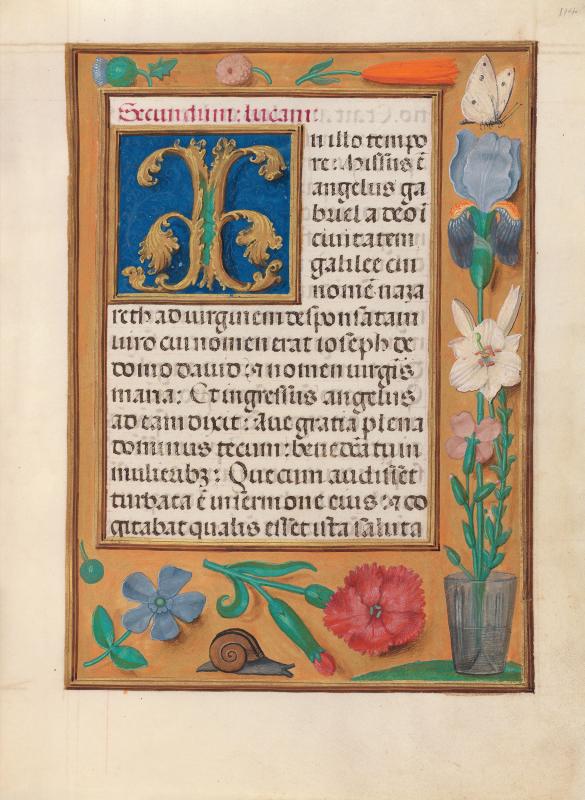 Secundum: lucam:
In illo tempo
re: Missus ē
angelus ga
briel a deo ī
ciuitatem
galilee cui
nomē naza
reth ad uirginem desponsatam
uiro cui nomen erat ioseph de
domo dauid: ⁊ nomen uirgīs
maria: Et ingressus angelus
ad eam dixit: Aue gratia plena
dominus tecum: benedc̄a tu in
mulieribꝫ: Que cum audisset
turbata ē in sermone eius: ⁊ co
gitabat qualis esset ista saluta